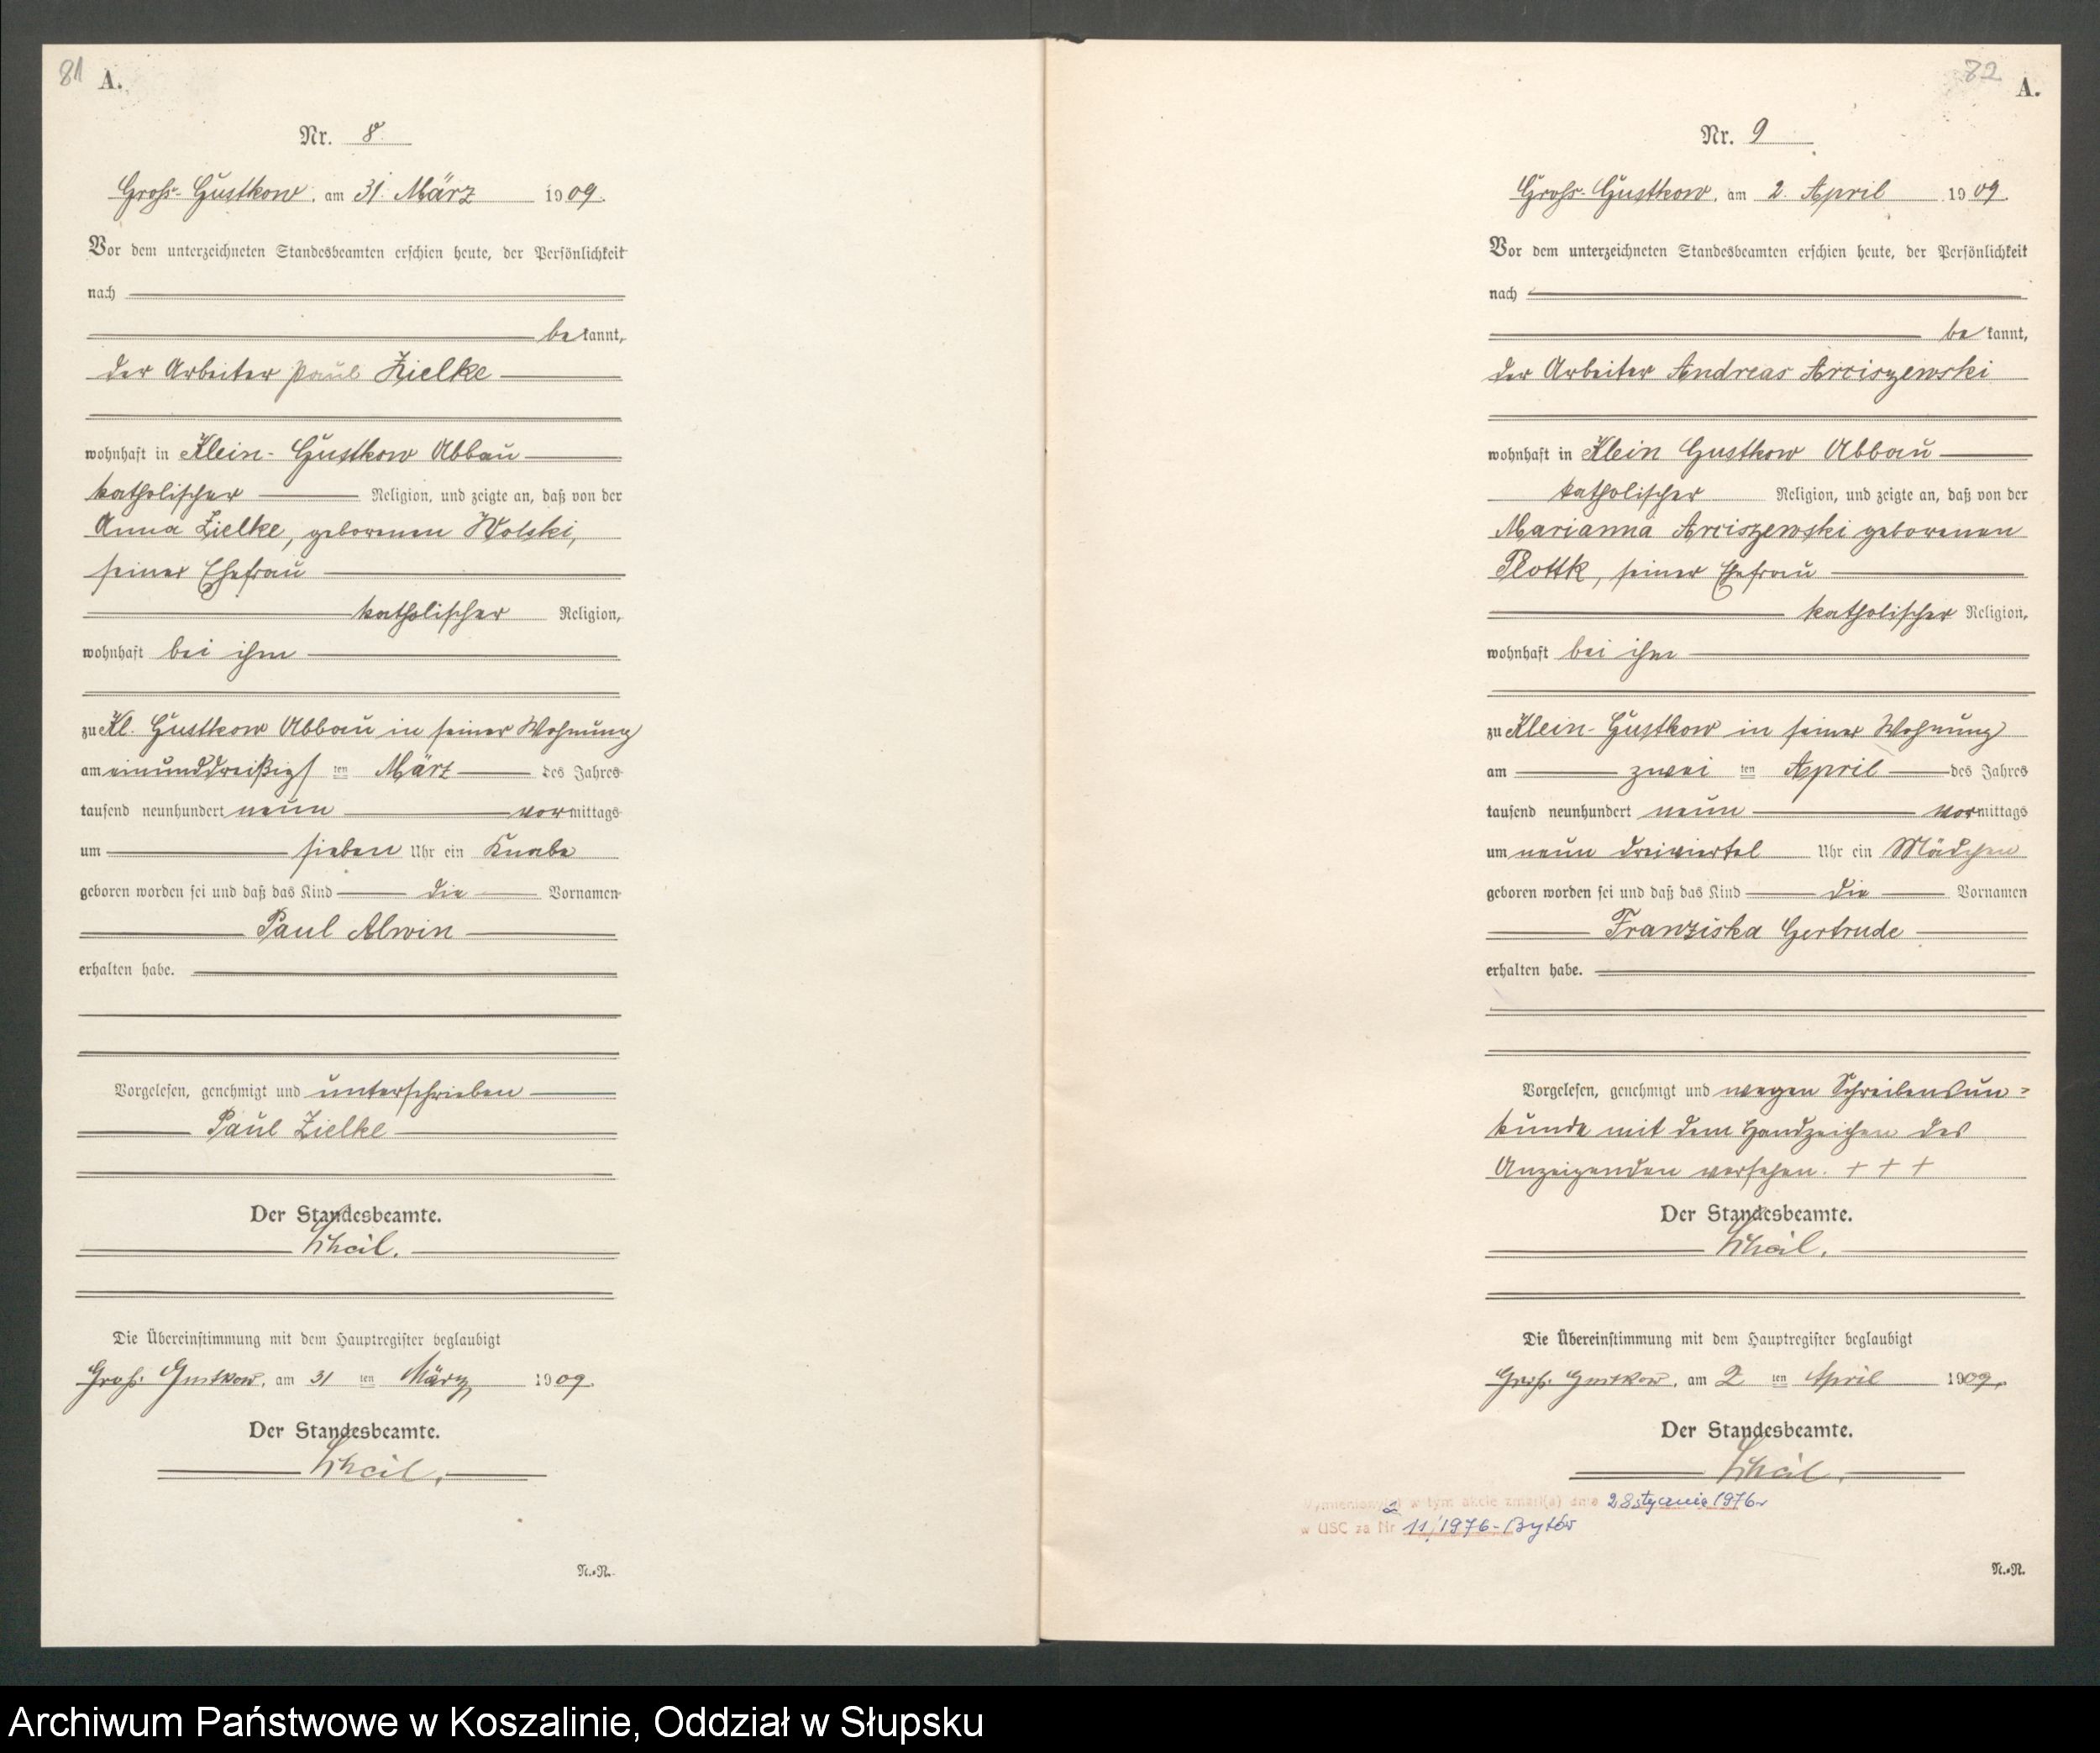 81 A.
Nr. 8
Groß-Gustkow, am 31. März 1909.
Vor dem unterzeichneten Standesbeamten erschien heute, der Persönlichkeit
nach
bekannt,
der Arbeiter Paul Zielke
wohnhaft in Klein-Gustkow Abbau
katholischer Religion, und zeigte an, daß von der
Anna Zielke, geborenen Wolski,
seiner Ehefrau
katholischer Religion,
wohnhaft bei ihm
zu Kl. Gustkow Abbau in seiner Wohnung
am einunddreißigsten März des Jahres
tausend neunhundert neun vormittags
um sieben Uhr ein Knabe
geboren worden sei und daß das Kind die Vornamen
Paul Alwin
erhalten habe.
Vorgelesen, genehmigt und unterschrieben
Paul Zielke
Der Standesbeamte.
Die Übereinstimmung mit dem Hauptregister beglaubigt
Groß. Gustkow, am 31 ten März 1909.
Der Standesbeamte.
N.-N.
82 A.
Nr. 9
Groß-Gustkow, am 2. April 1909.
Vor dem unterzeichneten Standesbeamten erschien heute, der Persönlichkeit
nach
bekannt,
der Arbeiter Andreas Arciszewski
wohnhaft in Klein Gustkow Abbau
katholischer Religion, und zeigte an, daß von der
Marianna Arciszewski geborenen
Plottk, seiner Ehefrau
katholischer Religion,
wohnhaft bei ihm
zu Klein-Gustkow in seiner Wohnung
am zwei ten April des Jahres
tausend neunhundert neun vormittags
um neun dreiviertel Uhr ein Mädchen
geboren worden sei und daß das Kind die Vornamen
Franziska Gertrude
erhalten habe.
Vorgelesen, genehmigt und wegen Schreibensun-
kunde mit dem Handzeichen des
Anzeigenden versehen. + + +
Der Standesbeamte.
Die Übereinstimmung mit dem Hauptregister beglaubigt
Groß. Gustkow, am 2 ten April 1909.
Der Standesbeamte.
Wymieniony(a) w tym akcie zmarł(a) dnia 28 stycznia 1976 r
w USC za Nr 11/1976 - Bytów
N.-N.
Archiwum Państwowe w Koszalinie, Oddział w Słupsku